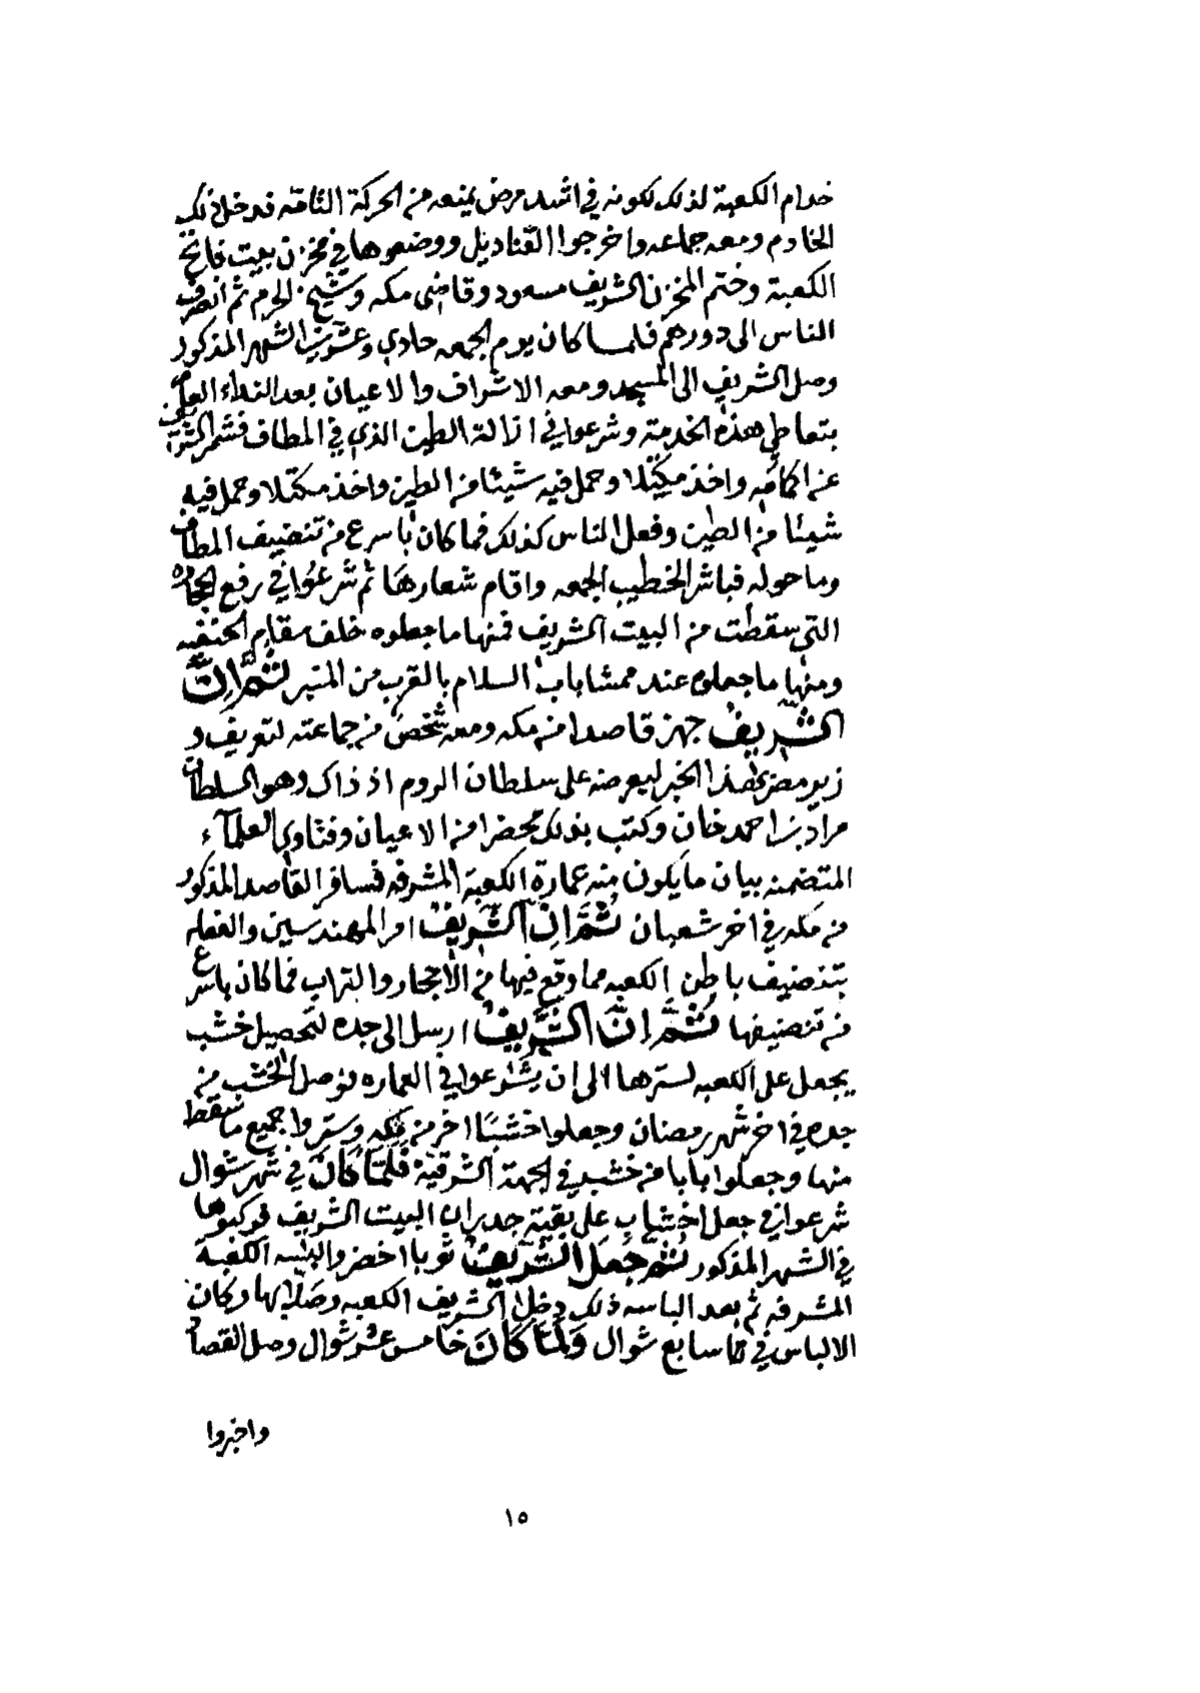 خدام الكعبة لذلك لكونه في اشد مرض يمنعه من الحركة التامه فدخل ذلك
الخادم ومعه جماعه واخرجوا القناديل ووضعوها في مخزن بيت فاتح
الكعبة وختم المخزن الشريف مسعود وقاضى مكه وشيخ الحرم ثم انصرف
الناس الى دورهم فلما كان يوم الجمعه حادي وعشرين الشهر المذكور
وصل الشريف الى المسجد ومعه الاشراف والاعيان بعد النداء العام
بتعاطي هذه الخدمة وشرعوا في ازالة الطين الذي في المطاف فشمر الشريف
عن اكمامه واخذ مكتلا وحمل فيه شيئا من الطين واخذ مكتلا وحمل فيه
شيئا من الطين وفعل الناس كذلك فما كان باسرع من تنضيف المطاف
وما حوله فباشر الخطيب الجمعه واقام شعارها ثم شرعوا في رفع الحجاره
التي سقطت من البيت الشريف فمنها ما جعلوه خلف مقام الحنفيه
ومنها ما جعلوه عند ممشا باب السلام بالقرب من المنبر ثم ان
الشريف جهز قاصدا من مكه ومعه شخص من جماعته لتعريف و
زير مصر بهذا الخبر ليعرضه على سلطان الروم اذ ذاك وهو السلطان
مراد بن احمد خان وكتب بذلك محضرا من الاعيان وفتاوي العلمآء
المتضمنه بيان ما يكون منه عمارة الكعبة المشرفه فسافر القاصد المذكور
من مكه في اخر شعبان ثم ان الشريف امر المهندسين والفعله
بتنضيف باطن الكعبه مما وقع فيها من الاحجار والتراب فما كان باسرع
من تنضيفها ثم ان الشريف ارسل الى جده لتحصيل خشب
يجعل على الكعبه لسترها الى ان يشرعوا في العماره فوصل الخشب من
جده في اخر شهر رمضان وجعلوا خشبا اخر من مكه وستروا جميع ما سقط
منها وجعلوا بابا من خشب في الجهة الشرقية فلما كان في شهر شوال
شرعوا في جعل اخشاب على بقية جدران البيت الشريف فركبوها
في الشهر المذكور ثم جعل الشريف ثوبا اخضر والبسه الكعبة
المشرفه ثم بعد الباسه ذلك دخل الشريف الكعبه وصلا بها وكان
الالباس في سابع شوال ولما كان خامس عشر شوال وصل القصاد
واخبروا
١٥